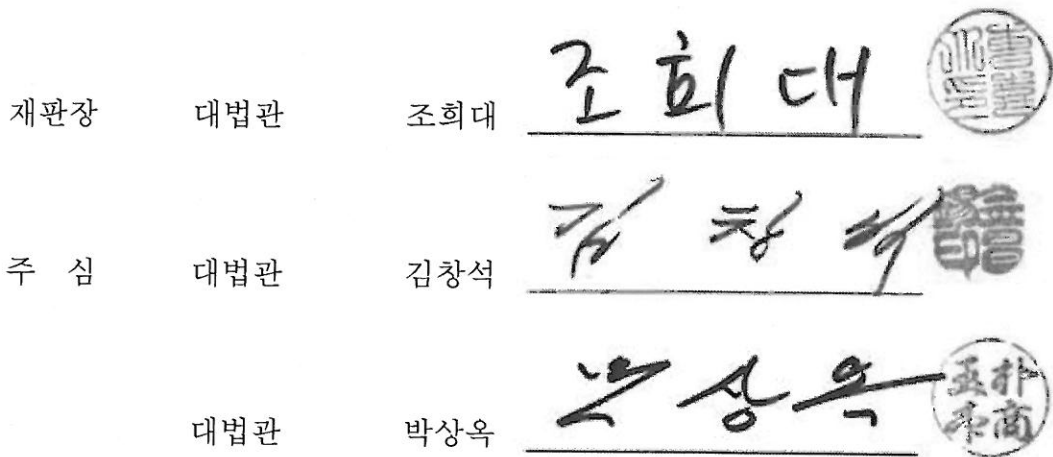 재판장 대법관 조희대 조 희 대
주 심 대법관 김창석 김 창 석
대법관 박상옥 박 상 옥